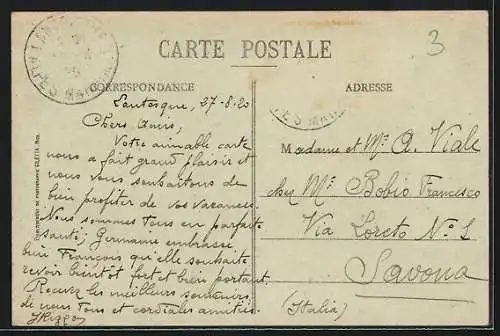 CARTE POSTALE
3
CORRESPONDANCE
ADRESSE
Lantosque, 27-8-20
Chers Amis,
Votre aimable carte
nous a fait grand plaisir et
nous vous souhaitons de
bien profiter de vos vacances.
Nous sommes tous en parfaite
santé; Germaine embrasse
bien François qu'elle souhaite
revoir bientôt fort et bien portant.
Recevez les meilleurs souvenirs
de nous tous et cordiales amitiés.
Madame et Mr A. Viale
chez Mr Bobio Francesco
Via Loreto No 1
Savona
(Italia)
ALPES MARITIMES